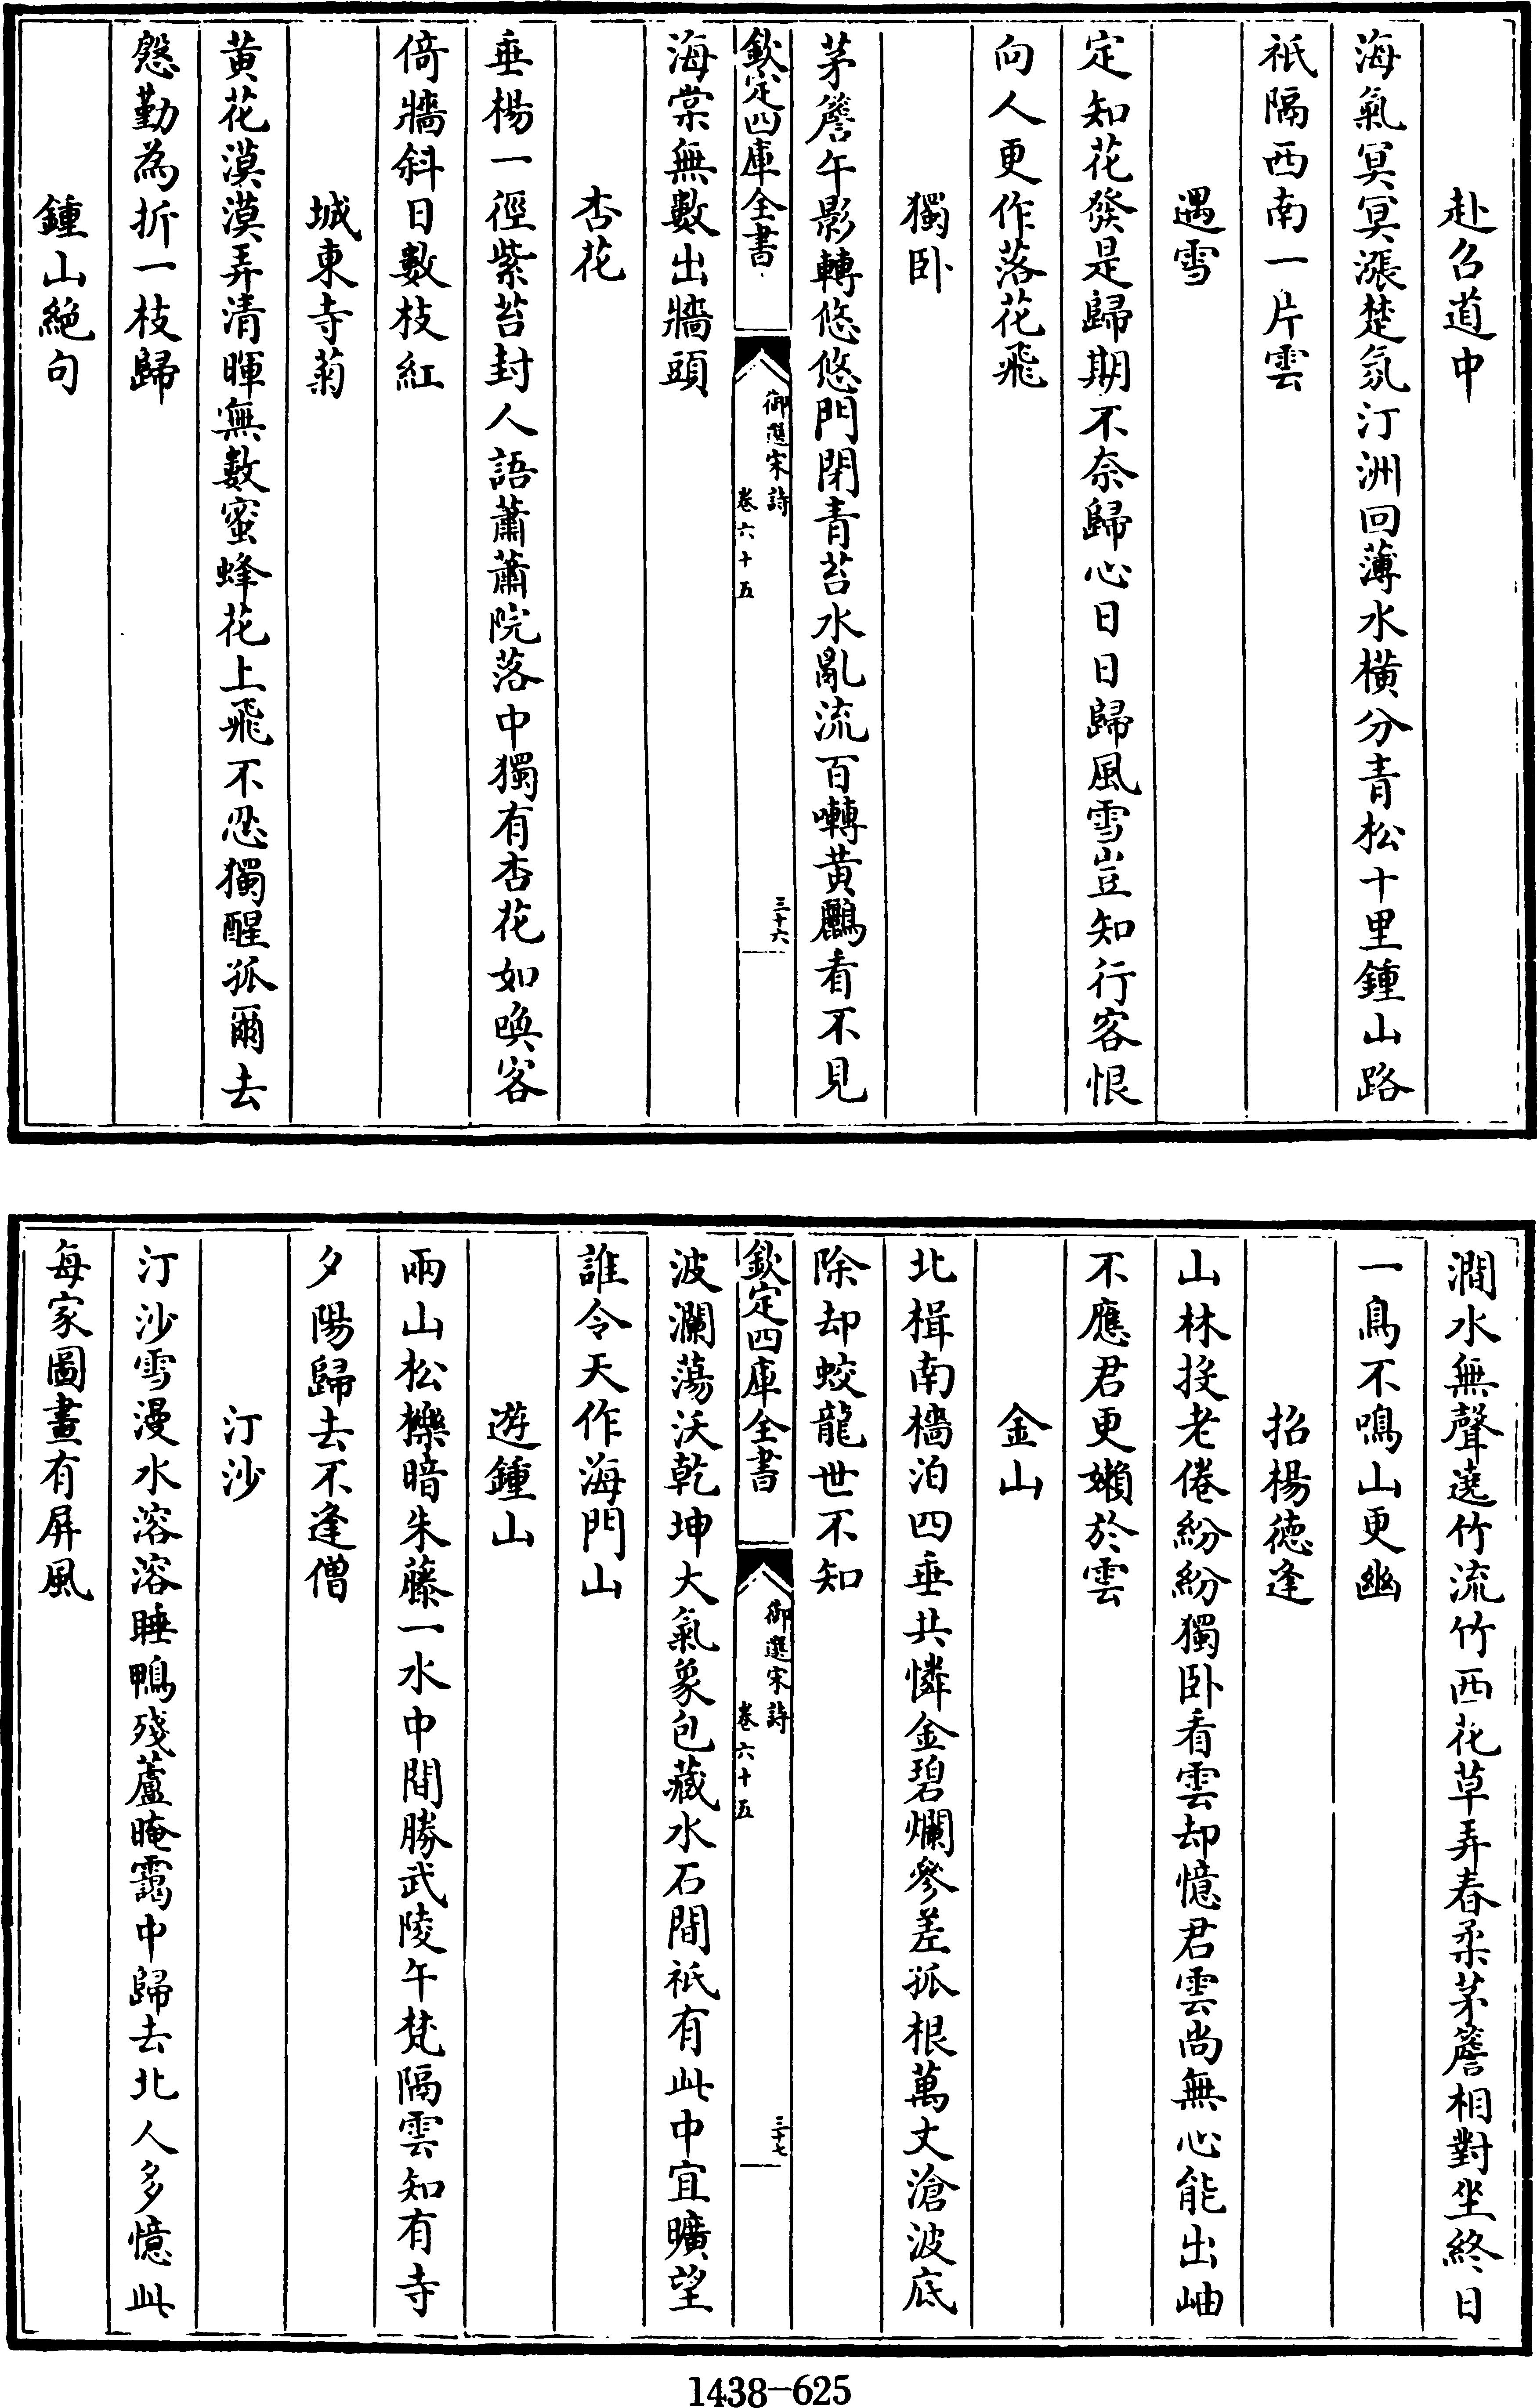 赴召道中
海氣冥冥漲楚氛汀洲回薄水橫分青松十里鍾山路
祇隔西南一片雲
遇雪
定知花發是歸期不奈歸心日日歸風雪豈知行客恨
向人更作落花飛
獨卧
茅簷午影轉悠悠門閉青苔水亂流百囀黄鸝看不見
欽定四庫全書
御選宋詩
卷六十五
三十六
海棠無數出牆頭
杏花
垂楊一徑紫苔封人語蕭蕭院落中獨有杏花如喚客
倚牆斜日數枝紅
城東寺菊
黄花漠漠弄清暉無數蜜蜂花上飛不忍獨醒孤爾去
慇勤為折一枝歸
鍾山絶句
澗水無聲遶竹流竹西花草弄春柔茅簷相對坐終日
一鳥不鳴山更幽
招楊徳逢
山林投老倦紛紛獨卧看雲却憶君雲尚無心能出岫
不應君更嬾於雲
金山
北楫南檣泊四垂共憐金碧爛參差孤根萬丈滄波底
除却蛟龍世不知
欽定四庫全書
御選宋詩
卷六十五
三十七
波瀾蕩沃乾坤大氣象包藏水石間祇有此中宜曠望
誰令天作海門山
遊鍾山
兩山松櫟暗朱藤一水中間勝武陵午梵隔雲知有寺
夕陽歸去不逢僧
汀沙
汀沙雪漫水溶溶睡鴨殘蘆晻靄中歸去北人多憶此
每家圖畫有屏風
1438-625